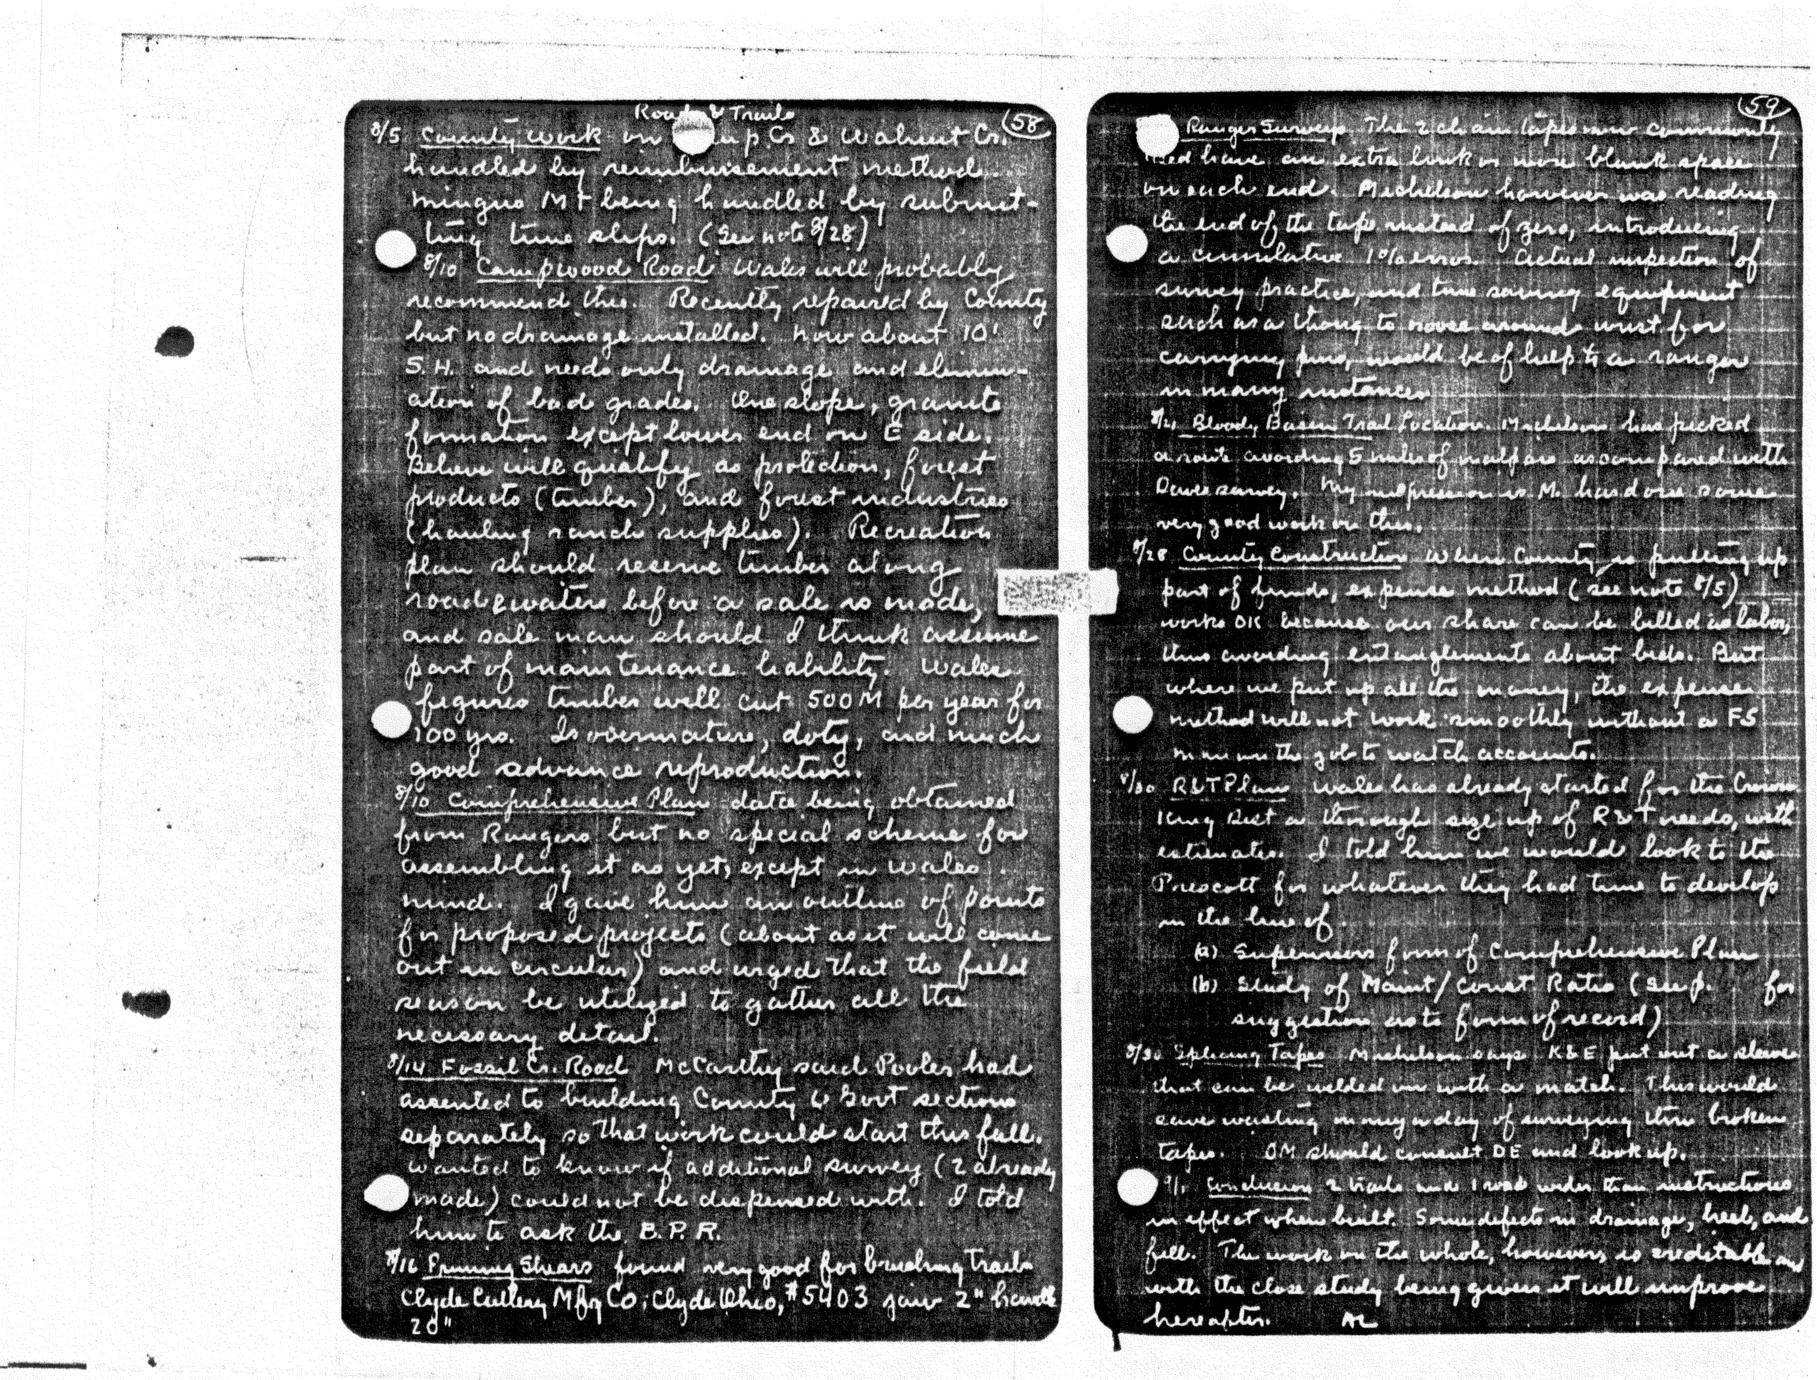 Roads & Trails
58
8/5 County Work on Cr & Walnut Cr.
handled by reimbursement method.
Mingus Mt being handled by submit-
ting time slips. (See note 8/28)
8/10 Campwood Road Wales will probably
recommend this. Recently repaired by County
but no drainage installed. Now about 10'
S.H. and needs only drainage and elimin-
ation of bad grades. One slope, granite
formation except lower end on E side.
Believe will qualify as protection, forest
products (timber), and forest industries
(hauling ranch supplies). Recreation
plan should reserve timber along
road & waters before a sale is made,
and sale man should I think assume
part of maintenance liability. Wales
figures timber will cut 500M per year for
100 yrs. Is overmature, doty, and much
good advance reproduction.
8/10 Comprehensive Plan data being obtained
from Rangers but no special scheme for
assembling it as yet, except in Wales
mind. I gave him an outline of points
for proposed projects (about as it will come
out in circular) and urged that the field
season be utilized to gather all the
necessary detail.
8/14 Fossil Cr. Road McCarthy said Pooler had
assented to building County & Govt sections
separately so that work could start this fall.
Wanted to know if additional survey (2 already
made) could not be dispensed with. I told
him to ask the B.P.R.
8/16 Pruning Shears found very good for brushing trails
Clyde Cutlery Mfg Co; Clyde Ohio, #5403 jaw 2" handle
20"
59
Ranger Surveys The 2 chain tapes now commonly
used have an extra link or more blank space
on each end. Michelson however was reading
the end of the tape instead of zero, introducing
a cumulative 1% error. Actual inspection of
survey practice, and time saving equipment
such as a thong to noose around wrist for
carrying pins, would be of help to a ranger
in many instances.
8/21 Bloody Basin Trail Location. Michelson has picked
a route avoiding 5 miles of malpais as compared with
Davis survey. My impression is M. has done some
very good work on this.
8/28 County Construction Where County is putting up
part of funds, expense method (see note 8/5)
works OK because our share can be billed as labor,
thus avoiding entanglements about bids. But
where we put up all the money, the expense
method will not work smoothly without a FS
man on the job to watch accounts.
8/30 R&T Plans Wales has already started for the Crown
King Dist a thorough size up of R&T needs, with
estimates. I told him we would look to the
Prescott for whatever they had time to develop
in the line of.
(a) Supervisors form of Comprehensive Plan
(b) Study of Maint/Const Ratio (See p. for
suggestion as to form of record)
8/30 Splicing Tapes Michelson says K&E put out a sleeve
that can be welded on with a match. This would
save wasting many a day of surveying thru broken
tapes. OM should consult DE and look up.
9/1 Conclusion 2 trails and 1 road wider than instructions
in effect when built. Some defects in drainage, and
fill. The work on the whole, however, is creditable and
with the close study being given it will improve
hereafter. AL